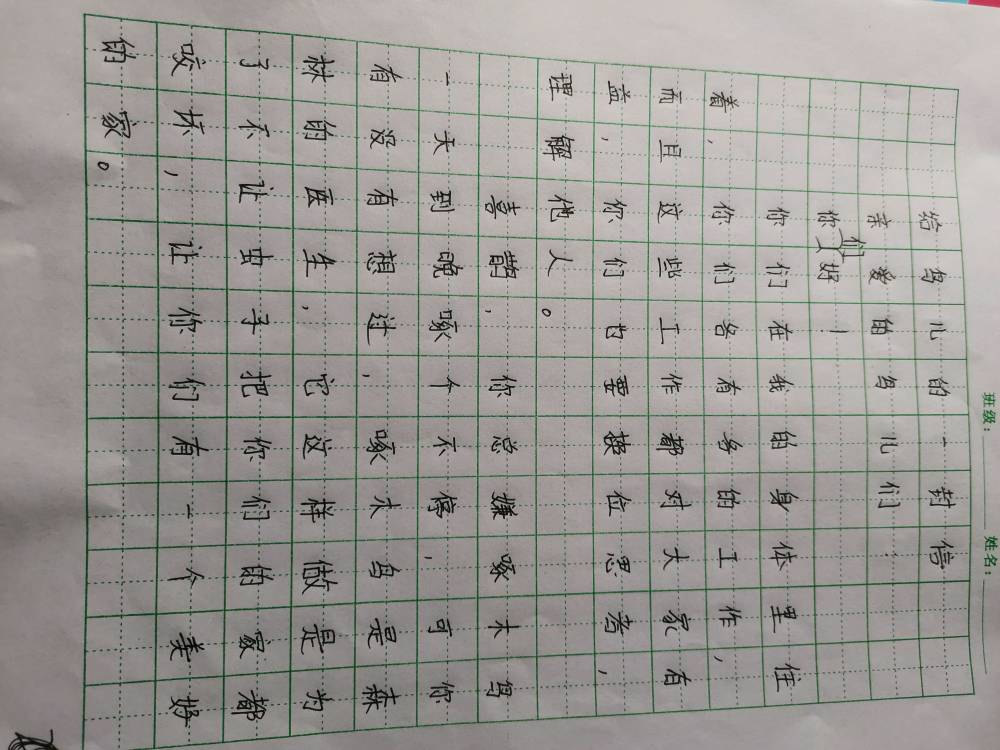 班级： 姓名：
给鸟儿的一封信
亲爱的鸟儿们：
你们好！
你们在我的身体里住
着，你们各有务的工作，
而且这些工作都对大家有
益，你们要换位思考，
理解他人。
喜鹊，你总嫌啄木鸟
一天到晚啄个不停，可你
有没有想过，啄木鸟是森
林的医生，它这样做是为
了不让虫子把你们的家都
咬坏，让你们有一个美好
的家。